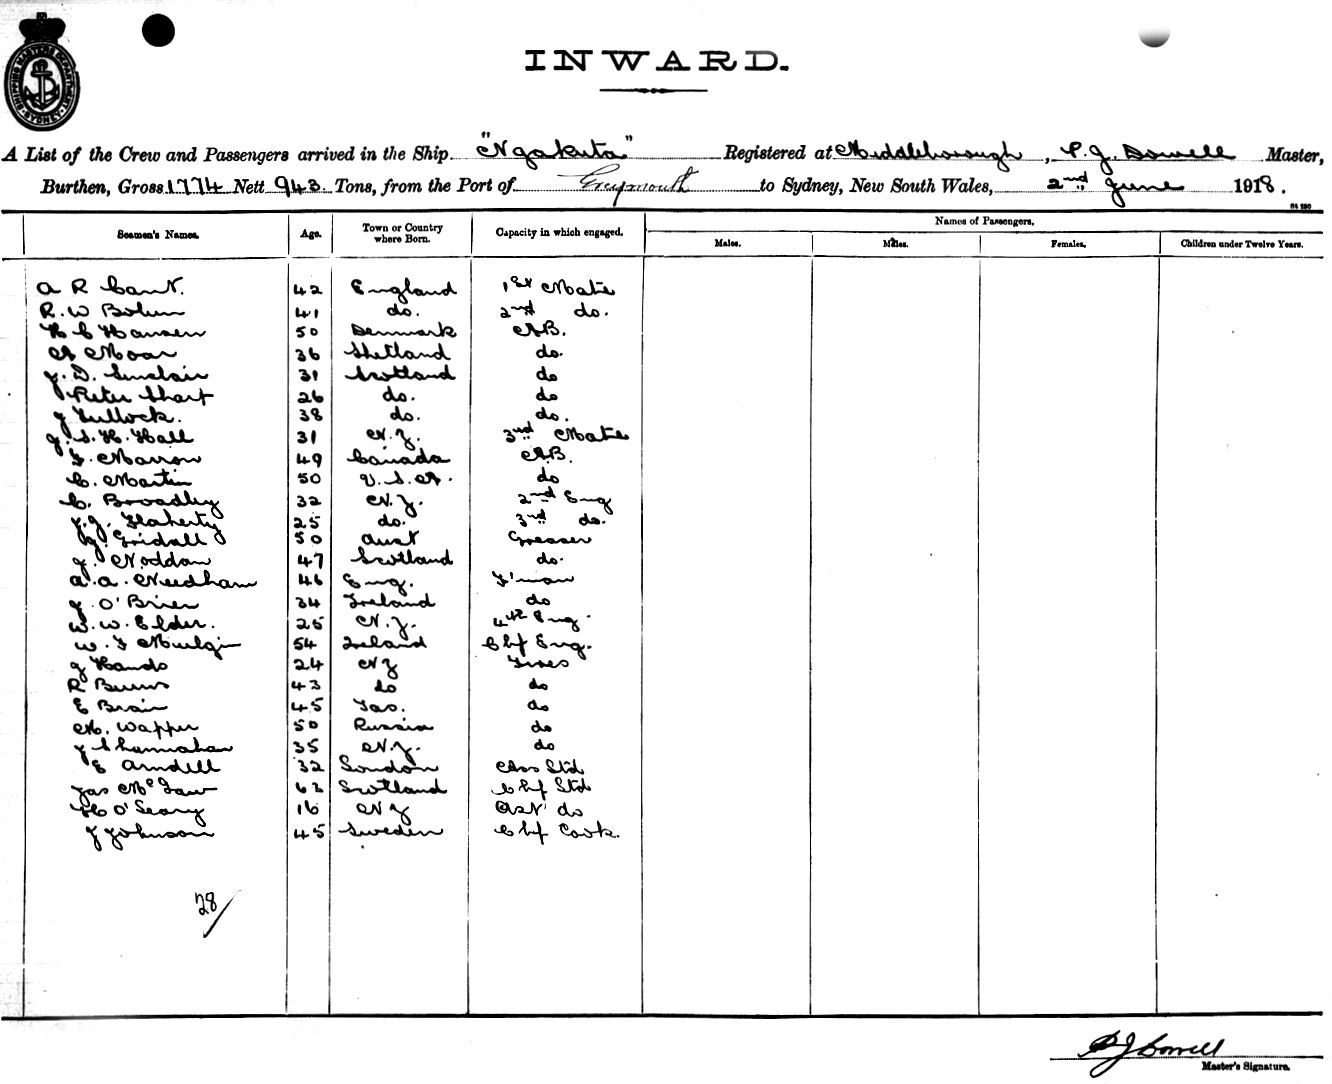 SHIPPING MASTERS DEPARTMENT SYDNEY
INWARD.
A List of the Crew and Passengers arrived in the Ship "Ngakuta" Registered at Middleborough, P. J. Dowell Master,
Burthen, Gross 1774 Nett 943 Tons, from the Port of Greymouth to Sydney, New South Wales, 2nd June 1918.
Names of Passengers.
Seamen's Names. Age. Town or Country where Born. Capacity in which engaged. Males. Males. Females. Children under Twelve Years.
A R Cant. 42 England 1st Mate
R. W 41 do. 2nd do.
H C Hansen 50 Denmark AB.
A Moar 36 Shetland do.
J. D. Sinclair 31 Scotland do
Peter Short 26 do. do
J Tullock. 38 do. do.
J. S. H. Hall 31 N.Z. 3rd Mate
F. Marrow 49 Canada AB.
C. Martin 50 U.S.A. do
C. Broadley 32 N.Z. 2nd Eng
J. J. Flaherty 25 do. 3rd do.
50 Aust Greaser
J. Noddan 47 Scotland do.
A. A. Needham 46 Eng. F'man
J O'Brien 34 Ireland do
W. W. Elder. 25 N.Z. 4th Eng.
W. F 54 Ireland Chf Eng.
J Hands 24 NZ
R Burns 43 do do
E Brain 45 Tas. do
M. Wapper 50 Russia do
J Shannahan 35 N.Z. do
E Arndell 32 London Std
Jas McLaw 63 Scotland Chf Std
H O'Leary 16 NZ Ast do
J Johnson 45 Sweden Chf Cook.
28/
P J Dowell
Master's Signature.